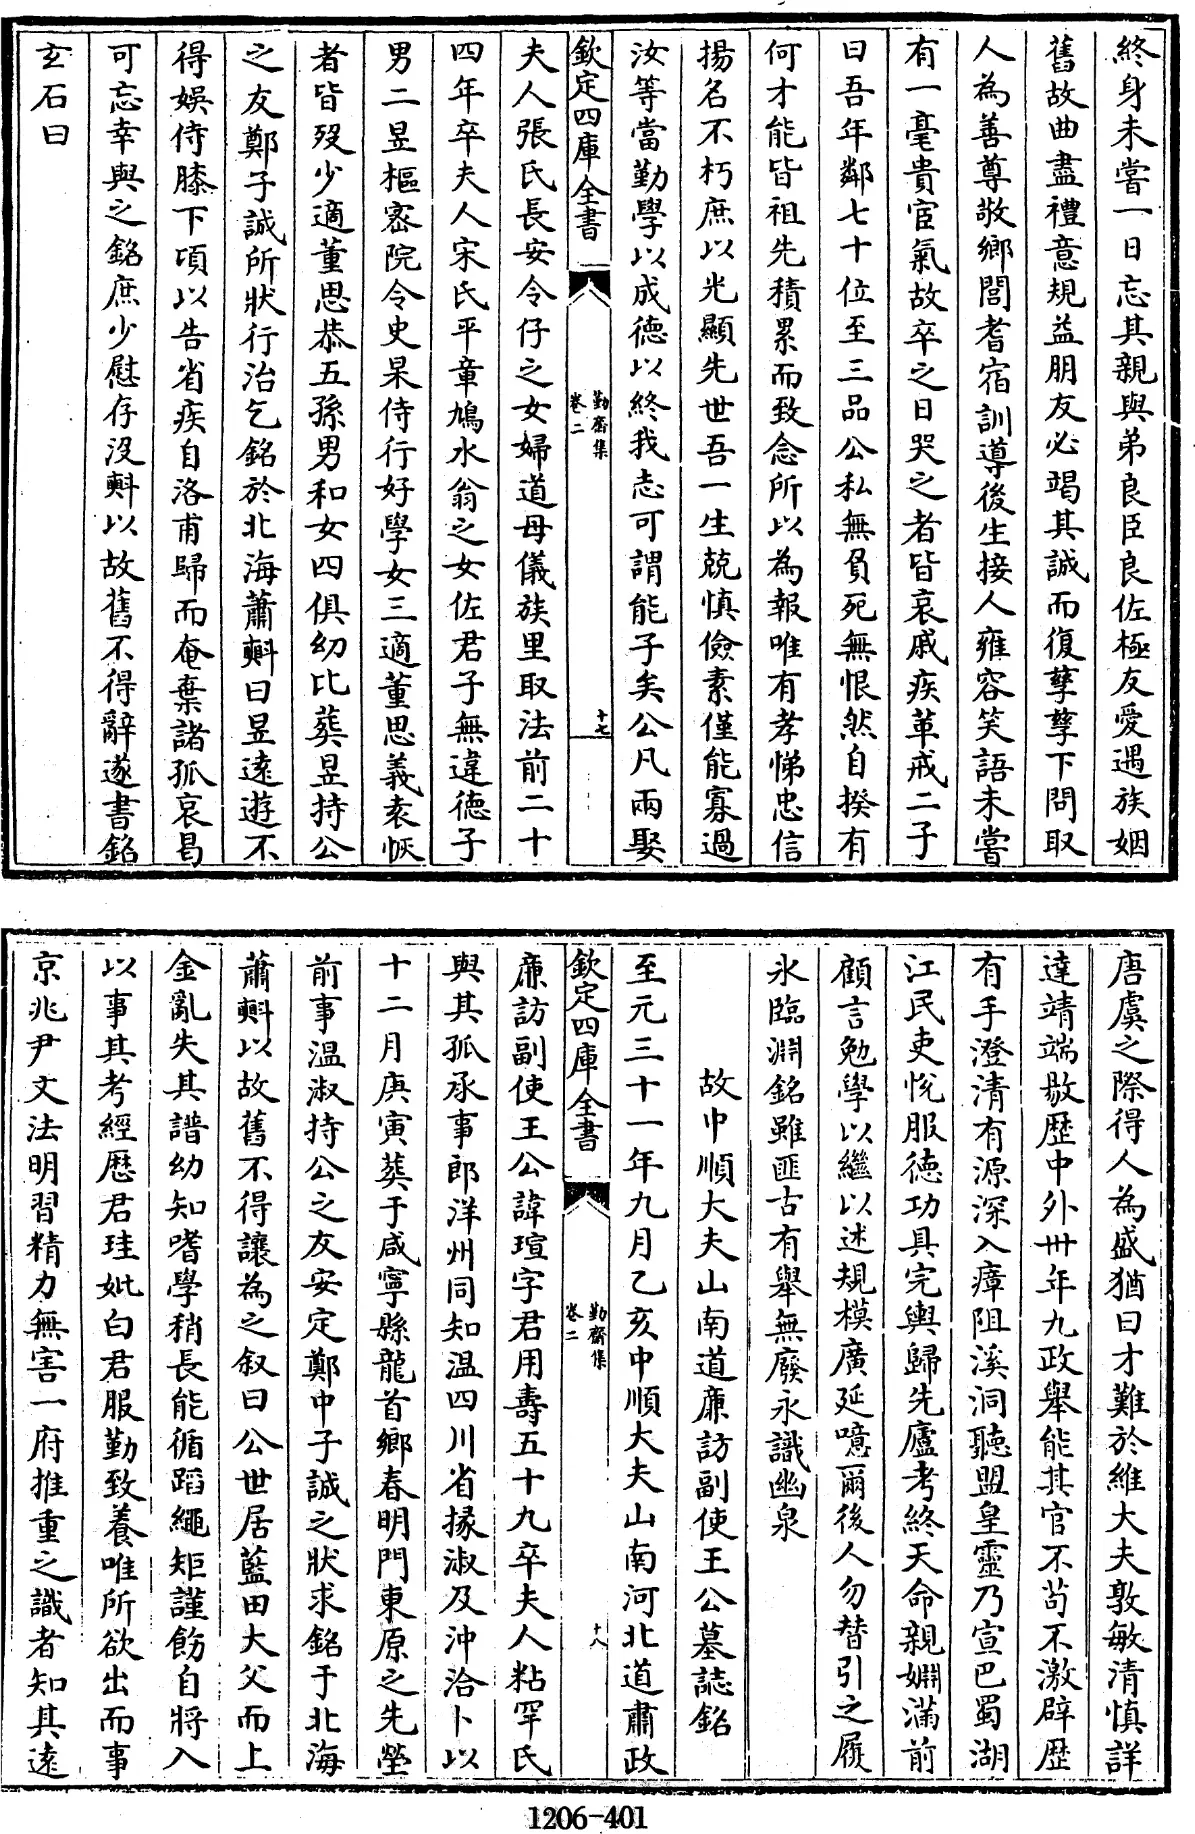 終身未嘗一日忘其親與弟良臣良佐極友愛遇族姻
舊故曲盡禮意規益朋友必竭其誠而復孳孳下問取
人為善尊敬鄉閭耆宿訓導後生接人雍容笑語未嘗
有一毫貴宦氣故卒之日哭之者皆哀戚疾革戒二子
曰吾年鄰七十位至三品公私無負死無恨然自揆有
何才能皆祖先積累而致念所以為報唯有孝悌忠信
揚名不朽庶以光顯先世吾一生兢慎儉素僅能寡過
汝等當勤學以成德以終我志可謂能子矣公凡兩娶
欽定四庫全書
勤齋集
卷二
十七
夫人張氏長安令仔之女婦道母儀族里取法前二十
四年卒夫人宋氏平章鳩水翁之女佐君子無違德子
男二昱樞宻院令史杲侍行好學女三適董思義袁恢
者皆歿少適董思恭五孫男和女四俱幼比葬昱持公
之友鄭子誠所狀行治乞銘於北海蕭㪺曰昱遠遊不
得娛侍膝下頃以告省疾自洛甫歸而奄棄諸孤哀曷
可忘幸與之銘庶少慰存沒㪺以故舊不得辭遂書銘
玄石曰
唐虞之際得人為盛猶曰才難於維大夫敦敏清慎詳
達靖端敭歷中外卌年九政舉能其官不苟不激辟歴
有手澄清有源深入瘴阻溪洞聽盟皇靈乃宣巴蜀湖
江民吏悅服德功具完輿歸先廬考終天命親婣滿前
顧言勉學以繼以述規模廣延噫爾後人勿替引之履
氷臨淵銘雖匪古有舉無廢永識幽泉
故中順大夫山南道廉訪副使王公墓誌銘
至元三十一年九月乙亥中順大夫山南河北道肅政
欽定四庫全書
勤齋集
卷二
十八
廉訪副使王公諱瑄字君用壽五十九卒夫人粘罕氏
與其孤承事郎洋州同知温四川省掾淑及沖洽卜以
十二月庚寅葬于咸寧縣龍首鄉春明門東原之先塋
前事温淑持公之友安定鄭中子誠之狀求銘于北海
蕭㪺以故舊不得讓為之叙曰公世居藍田大父而上
金亂失其譜幼知嗜學稍長能循蹈繩矩謹飭自將入
以事其考經歴君珪妣白君服勤致養唯所欲出而事
京兆尹文法明習精力無害一府推重之識者知其遠
1206-401